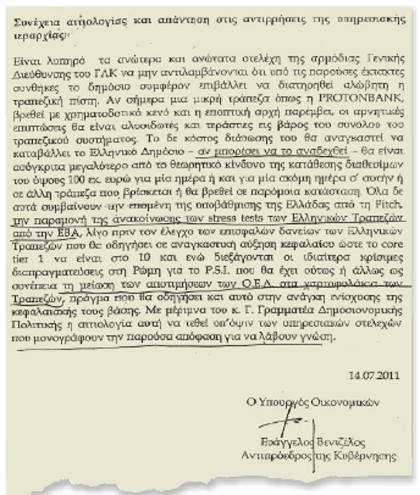 Συνέχεια αιτιολογίας και απάντηση στις αντιρρήσεις της υπηρεσιακής
ιεραρχίας:
Είναι λυπηρό τα ανώτερα και ανώτατα στελέχη της αρμόδιας Γενικής
Διεύθυνσης του ΓΛΚ να μην αντιλαμβάνονται ότι υπό τις παρούσες έκτακτες
συνθήκες το δημόσιο συμφέρον επιβάλλει να διατηρηθεί αλώβητη η
τραπεζική πίστη. Αν σήμερα μια μικρή τράπεζα όπως η PROTONBANK,
βρεθεί με χρηματοδοτικό κενό και η εποπτική αρχή παρέμβει, οι αρνητικές
επιπτώσεις θα είναι αλυσιδωτές και τεράστιες εις βάρος του συνόλου του
τραπεζικού συστήματος. Το δε κόστος διάσωσης που θα αναγκαστεί να
καταβάλλει το Ελληνικό Δημόσιο – αν μπορέσει να το αναδεχθεί – θα είναι
ασύγκριτα μεγαλύτερο από το θεωρητικό κίνδυνο της κατάθεσης διαθεσίμων
του ύψους 100 εκ. ευρώ για μία ημέρα ή και για μία ακόμη ημέρα σ' αυτήν ή
σε άλλη τράπεζα που βρίσκεται ή θα βρεθεί σε παρόμοια κατάσταση. Όλα δε
αυτά συμβαίνουν την επομένη της υποβάθμισης της Ελλάδας από τη Fitch,
την παραμονή της ανακοίνωσης των stress tests των Ελληνικών Τραπεζών
από την ΕΒΑ, λίγο πριν τον έλεγχο των επισφαλών δανείων των Ελληνικών
Τραπεζών που θα οδηγήσει σε αναγκαστική αύξηση κεφαλαίου ώστε το core
tier 1 να είναι στο 10 και ενώ διεξάγονται οι ιδιαίτερα κρίσιμες
διαπραγματεύσεις στη Ρώμη για το P.S.I. που θα έχει ούτως ή άλλως ως
συνέπεια τη μείωση των αποτιμήσεων των Ο.Ε.Δ. στα χαρτοφυλάκια των
Τραπεζών, πράγμα που θα οδηγήσει και αυτό στην ανάγκη ενίσχυσης της
κεφαλαιακής τους βάσης. Με μέριμνα του κ. Γ. Γραμματέα Δημοσιονομικής
Πολιτικής η αιτιολογία αυτή να τεθεί υπ'όψιν των υπηρεσιακών στελεχών
που μονογράφουν την παρούσα απόφαση για να λάβουν γνώση.
14.07.2011
Ο Υπουργός Οικονομικών
Ευάγγελος Βενιζέλος
Αντιπρόεδρος της Κυβέρνησης